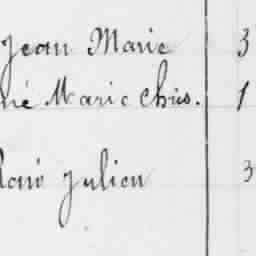 Jean Marie 3
né Marie Chris. 1
René Julien 3